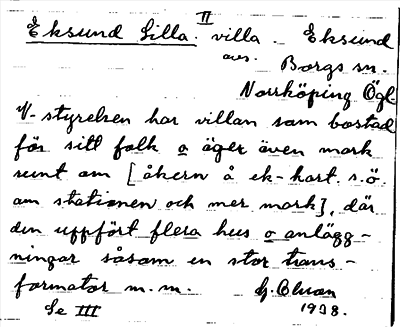 II
Eksund Lilla. villa. Eksund
avs.
Borgs sn.
Norrköping Ögl
V-styrelsen har villan som bostad
för sitt folk o äger även mark
runt om [åkern å ek-kart. s.ö.
om stationen och mer mark], där
den uppfört flera hus o anlägg-
ningar såsom en stor trans-
formator m.m.
1938.
Se III